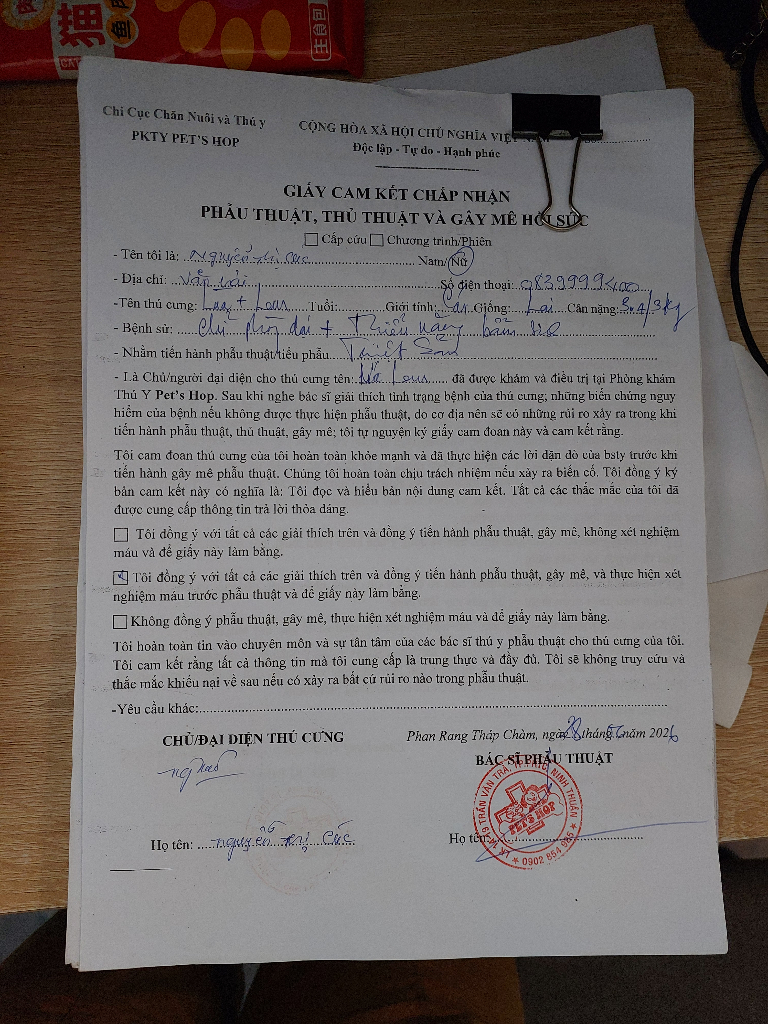 猫
主食包
Chi Cục Chăn Nuôi và Thú y
PKTY PET'S HOP
CỘNG HÒA XÃ HỘI CHỦ NGHĨA VIỆT NAM
Độc lập - Tự do - Hạnh phúc
GIẤY CAM KẾT CHẤP NHẬN
PHẪU THUẬT, THỦ THUẬT VÀ GÂY MÊ HỒI SỨC
Cấp cứu Chương trình/Phiên
- Tên tôi là: Nguyễn Thị Cúc Nam/Nữ
- Địa chỉ: Văn Hải Số điện thoại: 0839999400
-Tên thú cưng: + Tuổi: Giới tính: Giống: Lai Cân nặng: 3.4/3kg
- Bệnh sử: +
- Nhằm tiến hành phẫu thuật/tiểu phẫu Triệt Sản
- Là Chủ/người đại diện cho thú cưng tên: đã được khám và điều trị tại Phòng khám
Thú Y Pet's Hop. Sau khi nghe bác sĩ giải thích tình trạng bệnh của thú cưng, những biến chứng nguy
hiểm của bệnh nếu không được thực hiện phẫu thuật, do cơ địa nên sẽ có những rủi ro xảy ra trong khi
tiến hành phẫu thuật, thủ thuật, gây mê; tôi tự nguyện ký giấy cam đoan này và cam kết rằng.
Tôi cam đoan thú cưng của tôi hoàn toàn khỏe mạnh và đã thực hiện các lời dặn dò của bsty trước khi
tiến hành gây mê phẫu thuật. Chúng tôi hoàn toàn chịu trách nhiệm nếu xảy ra biến cố. Tôi đồng ý ký
bản cam kết này có nghĩa là: Tôi đọc và hiểu bản nội dung cam kết. Tất cả các thắc mắc của tôi đã
được cung cấp thông tin trả lời thỏa đáng.
Tôi đồng ý với tất cả các giải thích trên và đồng ý tiến hành phẫu thuật, gây mê, không xét nghiệm
máu và để giấy này làm bằng.
Tôi đồng ý với tất cả các giải thích trên và đồng ý tiến hành phẫu thuật, gây mê, và thực hiện xét
nghiệm máu trước phẫu thuật và để giấy này làm bằng.
Không đồng ý phẫu thuật, gây mê, thực hiện xét nghiệm máu và để giấy này làm bằng.
Tôi hoàn toàn tin vào chuyên môn và sự tận tâm của các bác sĩ thú y phẫu thuật cho thú cưng của tôi.
Tôi cam kết rằng tất cả thông tin mà tôi cung cấp là trung thực và đầy đủ. Tôi sẽ không truy cứu và
thắc mắc khiếu nại về sau nếu có xảy ra bất cứ rủi ro nào trong phẫu thuật.
-Yêu cầu khác:
Phan Rang Tháp Chàm, ngày 28 tháng năm 2026
CHỦ/ĐẠI DIỆN THÚ CƯNG
BÁC SĨ PHẪU THUẬT
PET'S HOP
0902 854 985
Họ tên: nguyễn thị Cúc
Họ tên: